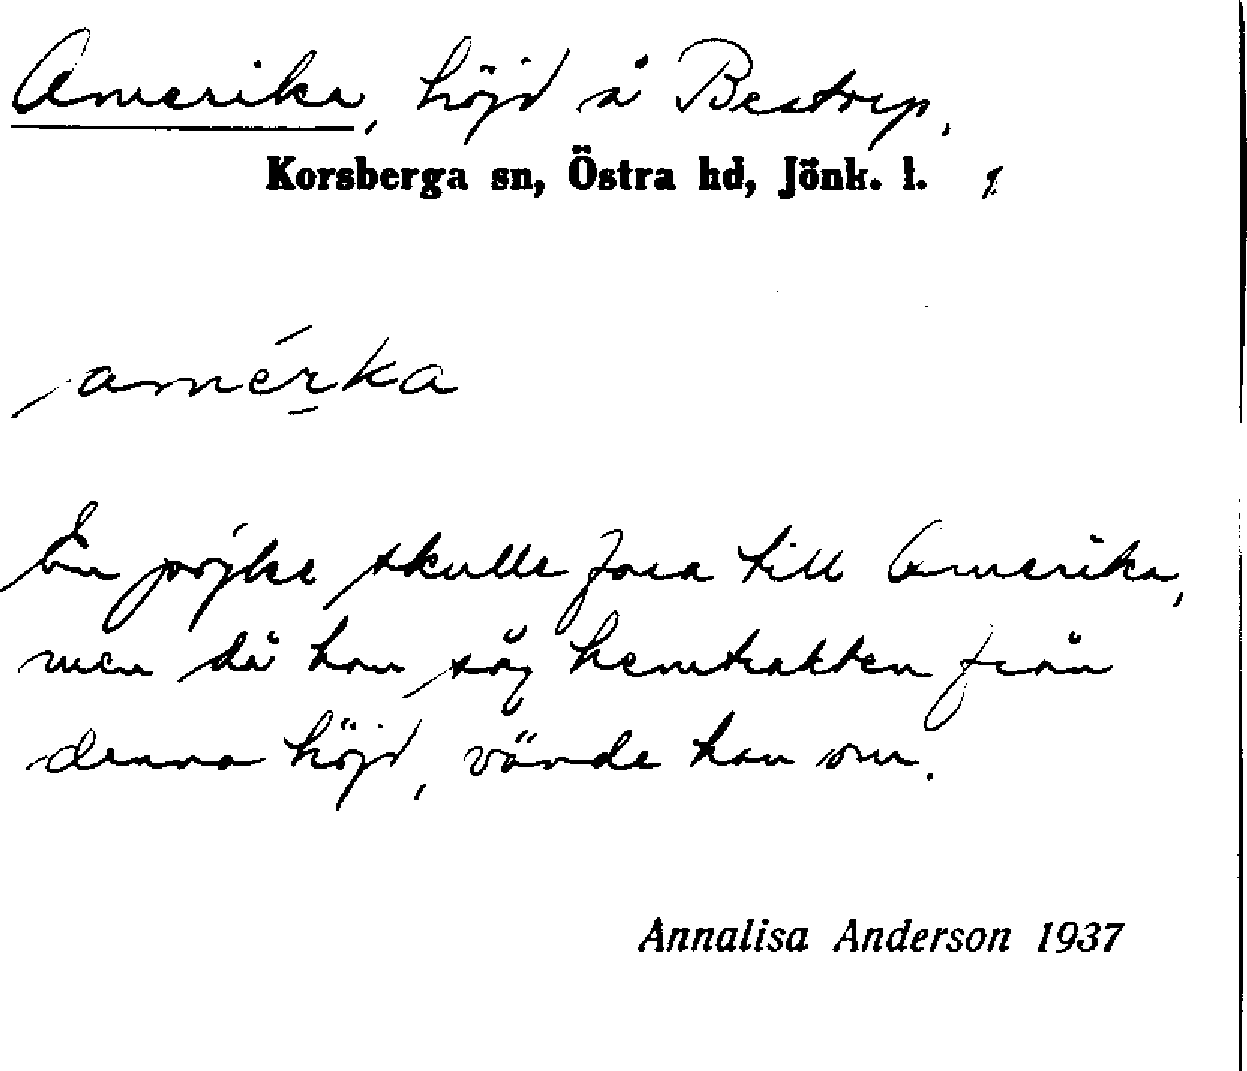 Amerika, höjd å Bestrup.
Korsberga sn, Östra hd, Jönk. l.
amérka
En pojke skulle fara till Amerika,
men då han såg hemtrakten från
denna höjd, vände han om.
Annalisa Anderson 1937